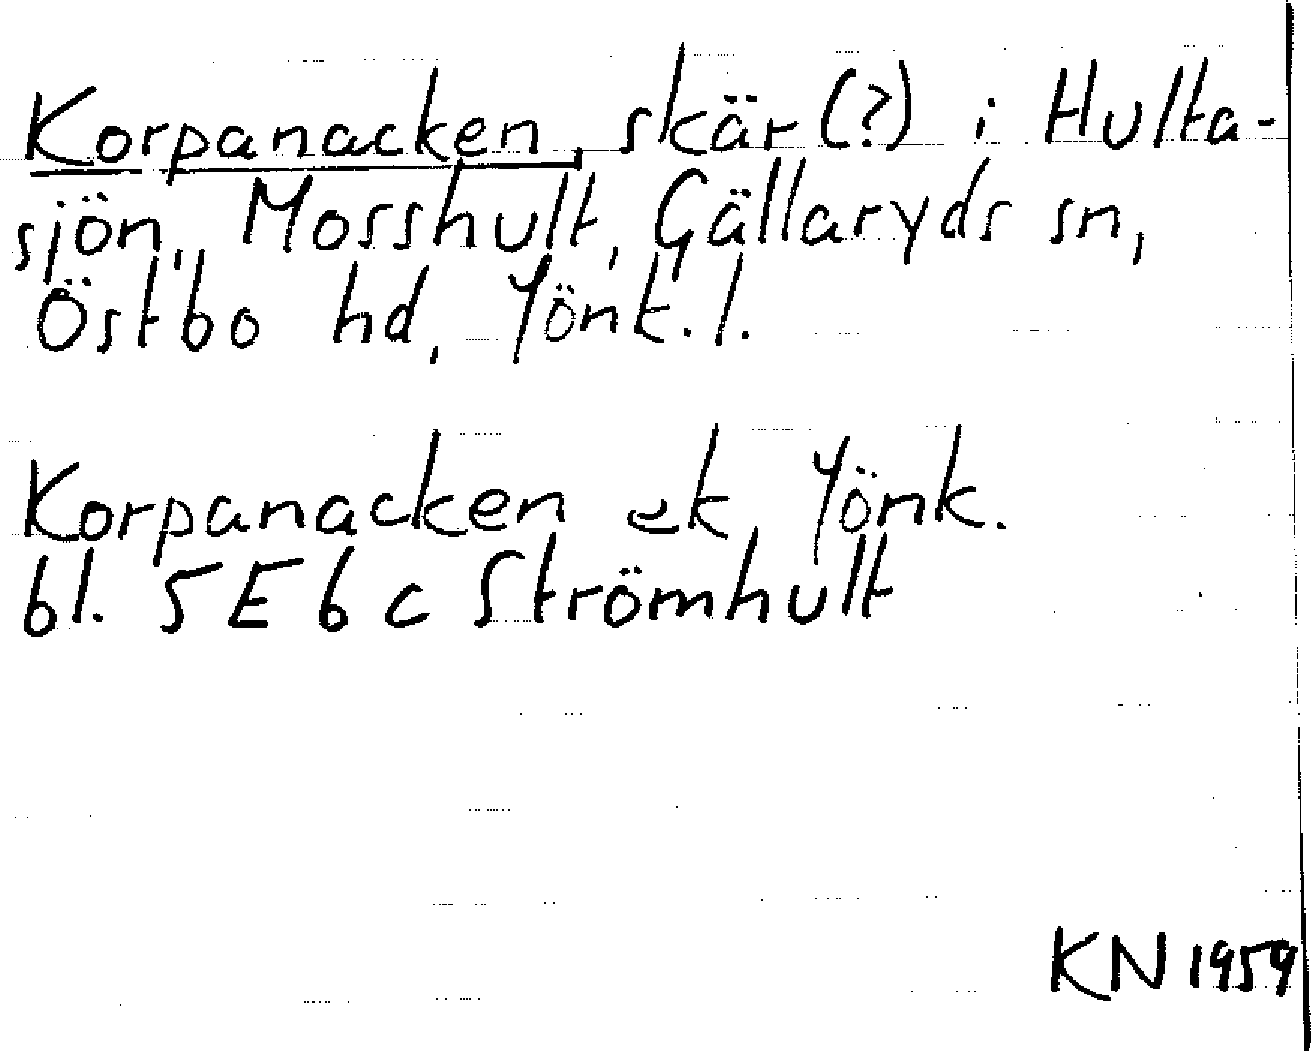 Korpanacken, skär (?) i Hulta-
sjön, Mosshult, Gällaryds sn,
Östbo hd, Jönk. l.
Korpanacken ek, Jönk.
bl. 5E6c Strömhult
KN 1959